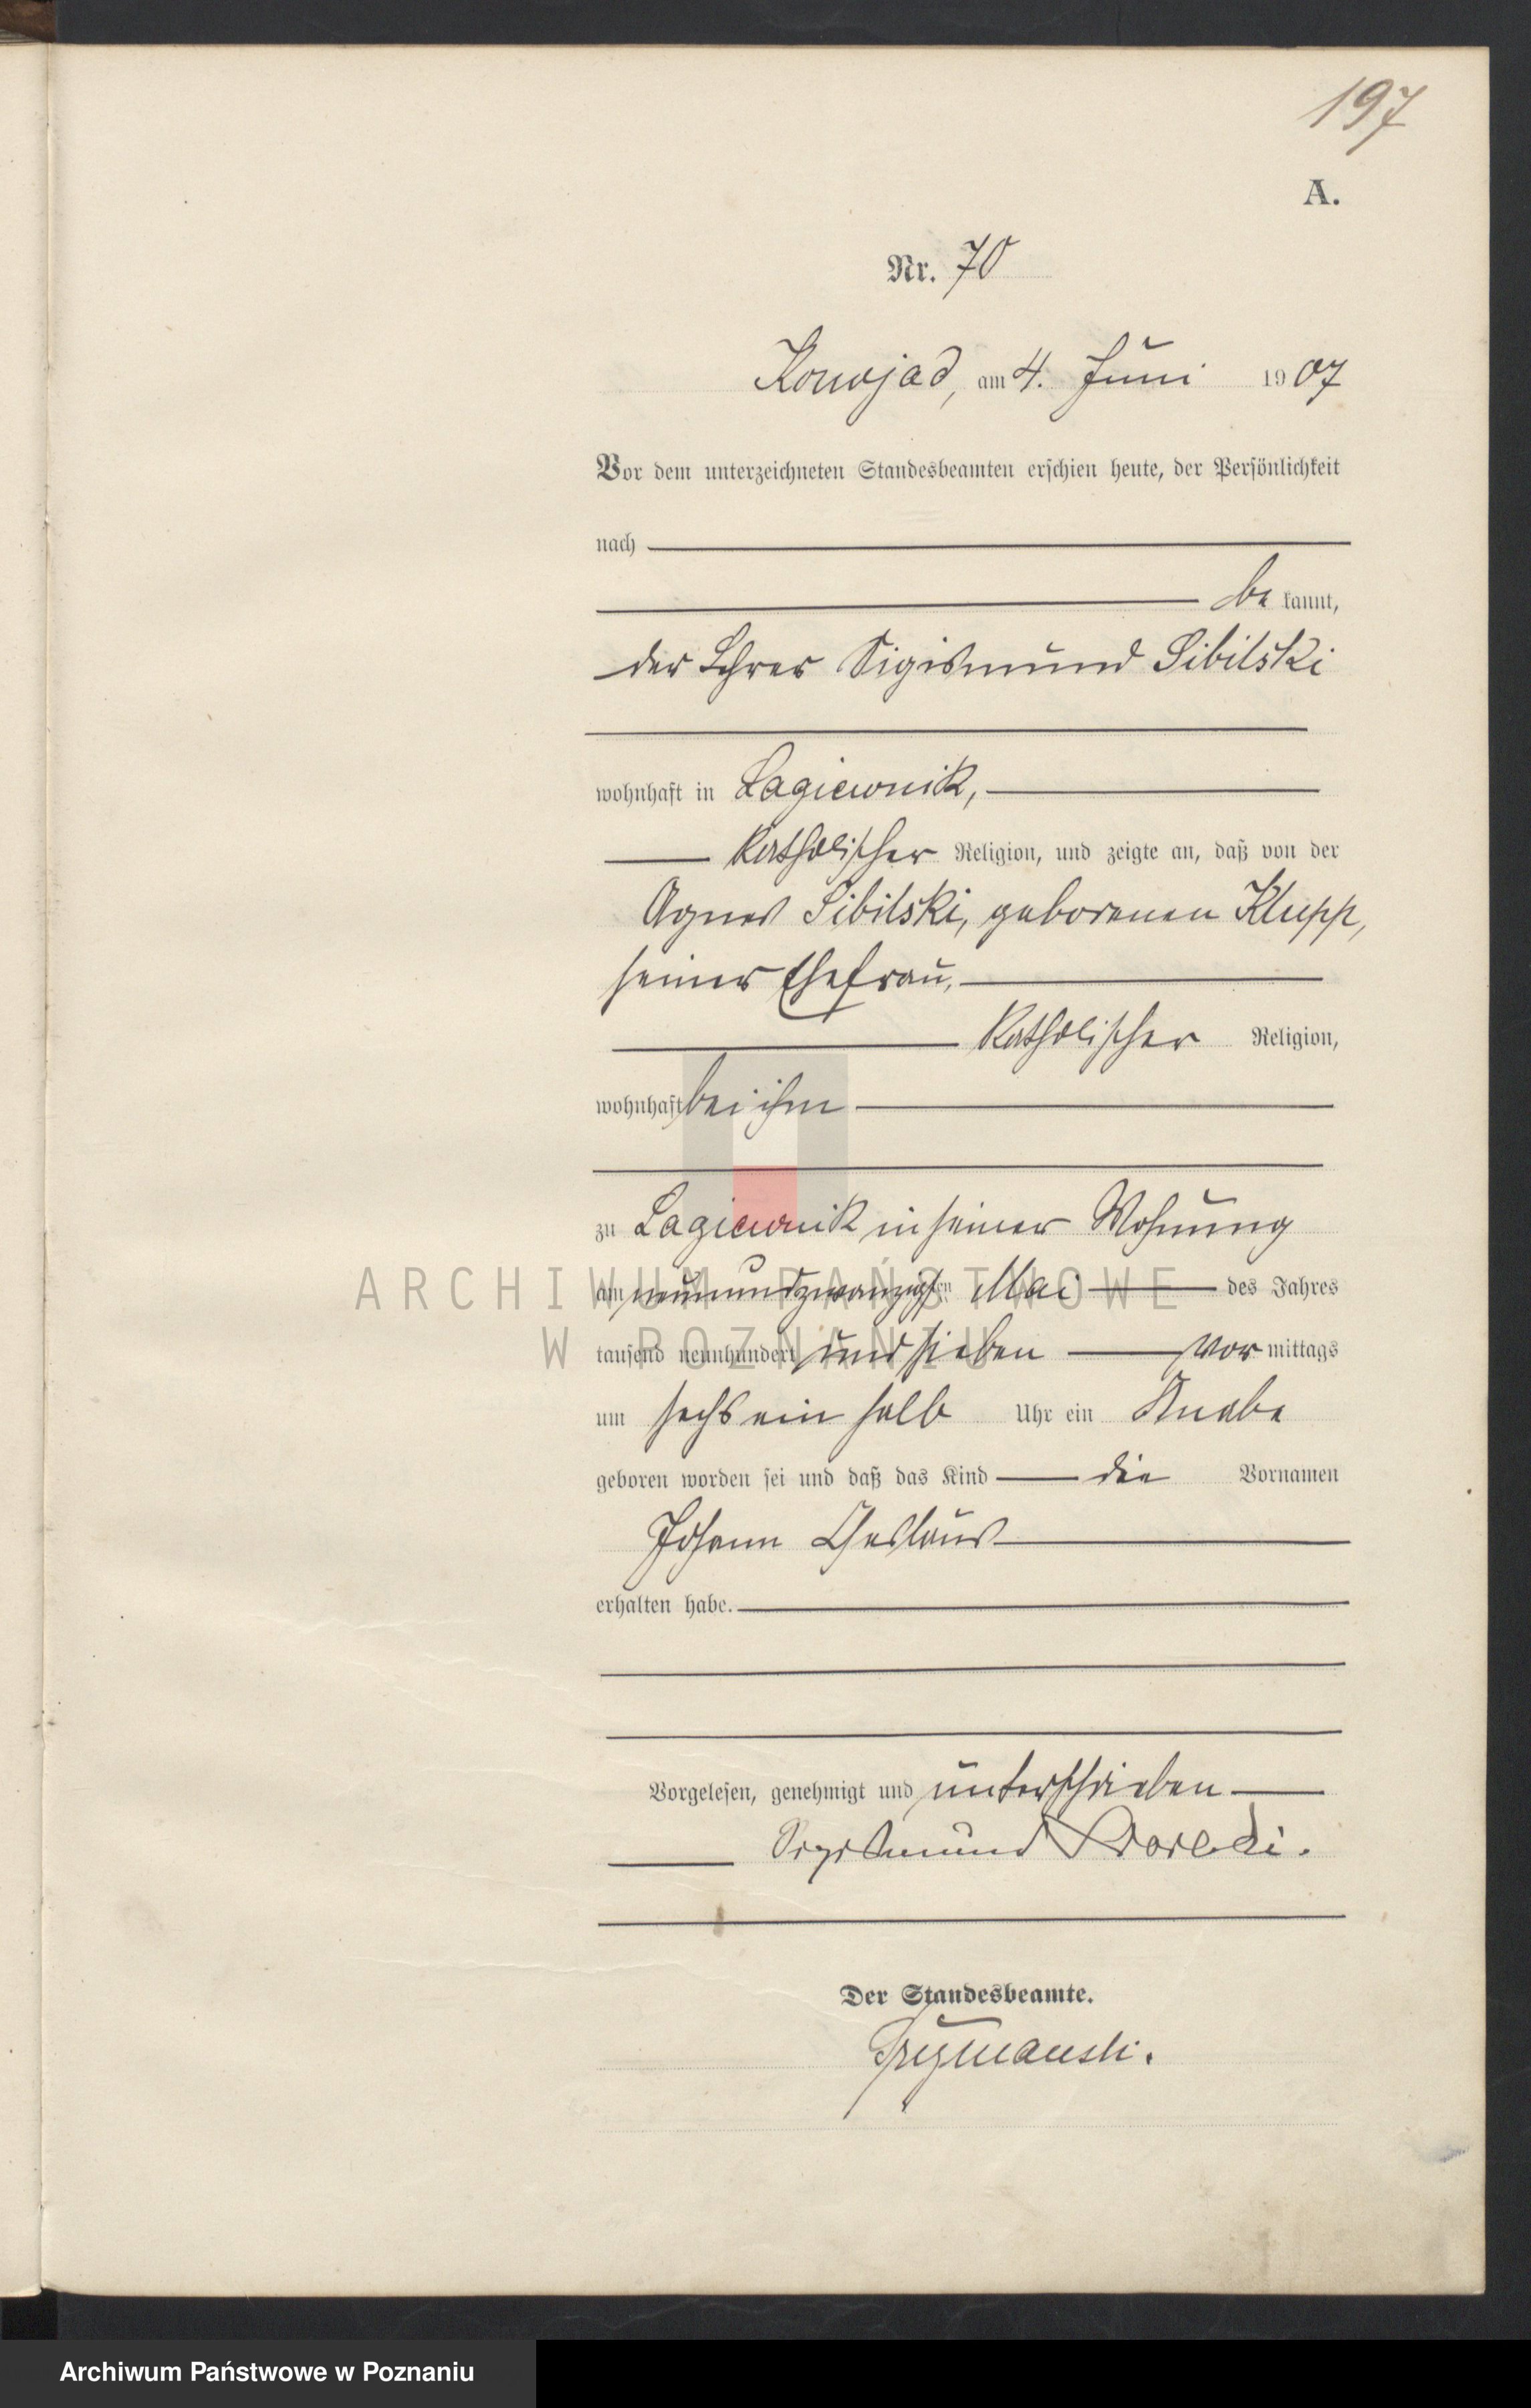 197
A.
Nr. 70
Konojad, am 4. Juni 1907
Vor dem unterzeichneten Standesbeamten erschien heute, der Persönlichkeit
nach
be kannt,
der Lehrer Sigismund Sibilski
wohnhaft in Lagiewnik,
katholischer Religion, und zeigte an, daß von der
Agnes Sibilski, geborenen Klupp,
seiner Ehefrau,
katholischer Religion,
wohnhaft bei ihm
zu Lagiewnik in seiner Wohnung
am neunundzwanzigsten Mai des Jahres
tausend neunhundert und sieben vor mittags
um sechs ein halb Uhr ein Knabe
geboren worden sei und daß das Kind die Vornamen
Johann Cheslaus
erhalten habe.
Vorgelesen, genehmigt und unterschrieben
Sigismund
Der Standesbeamte.
ARCHIWUM PAŃSTWOWE
W POZNANIU
Archiwum Państwowe w Poznaniu